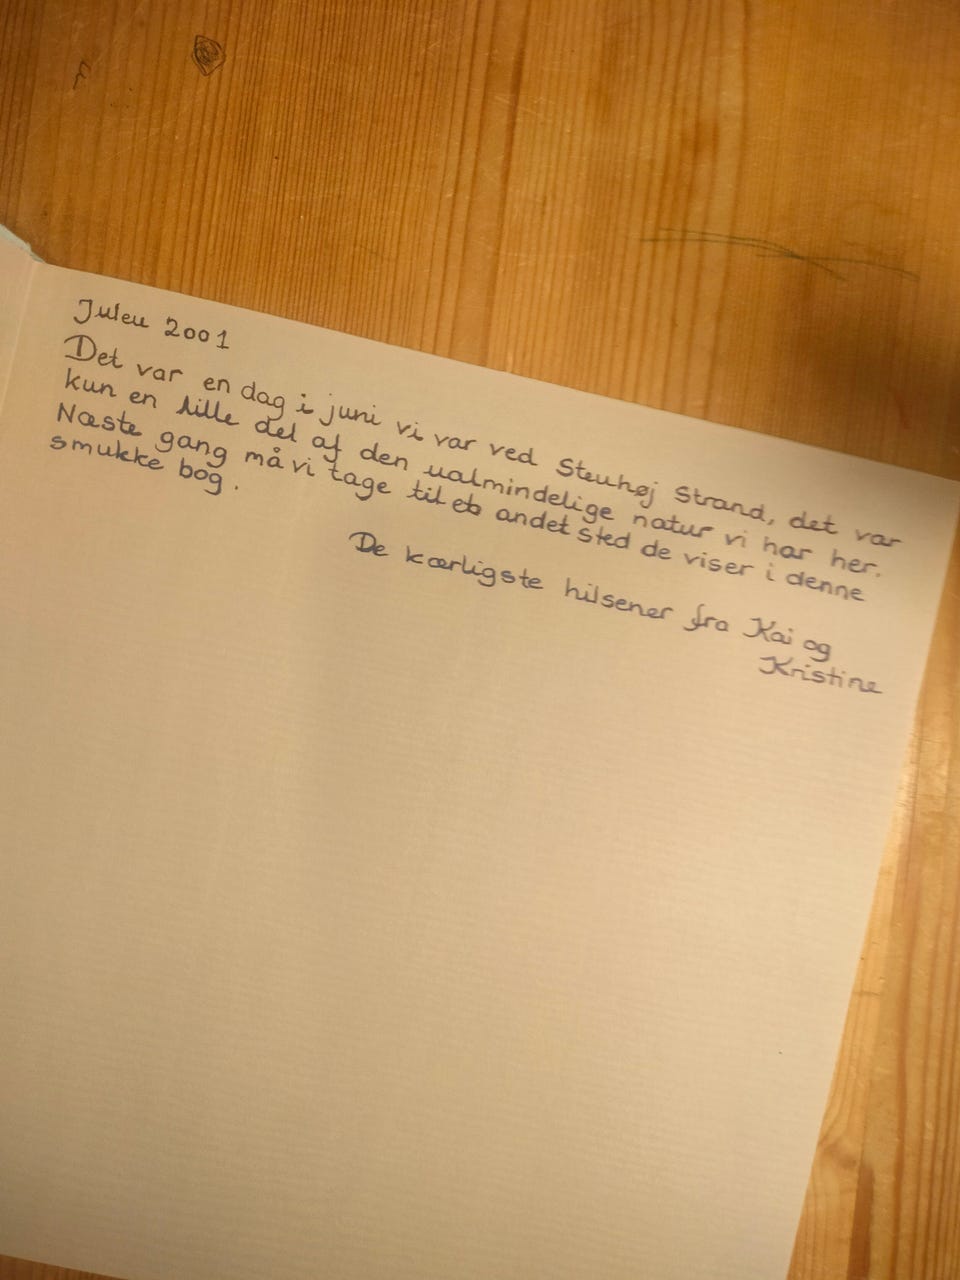 Julen 2001
Det var en dag i juni vi var ved Stenhøj Strand, det var
kun en lille del af den ualmindelige natur vi har her.
Næste gang må vi tage til et andet sted de viser i denne
smukke bog.
De kærligste hilsener fra Kai og
Kristine